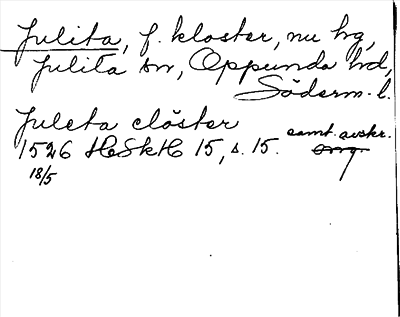 Julita, f. kloster, nu hg,
Julita sn, Oppunda hd,
Söderm. l.
Juleta clöster
1526 HSkH 15, s. 15. samt. avskr.
18/5 orig.